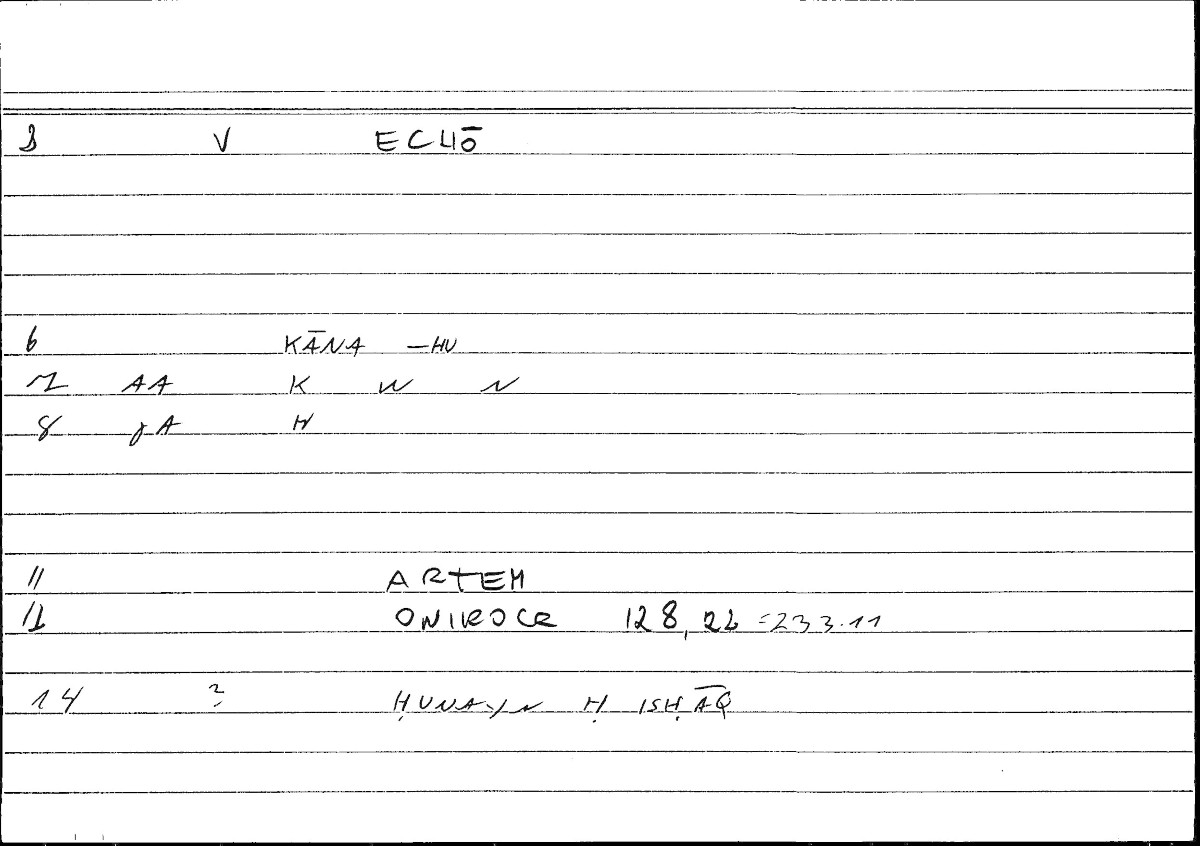 1 V ECHŌ
6 KĀNA -HU
7 AA K W N
8 gA H
11 ARTEM
12 ONIROCR 128, 22 =233.11
14 ? ḤUNAYN Ḥ ISḤĀQ